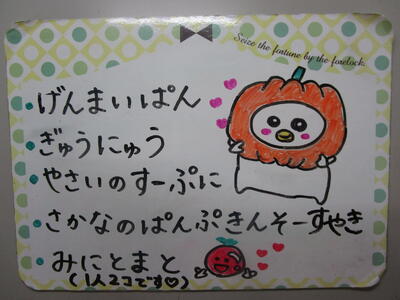 Seize the fortune by the forelock.
げんまいぱん
ぎゅうにゅう
やさいのすーぷに
さかなのぱんぷきんそーすやき
みにとまと
(1人2コです♡)